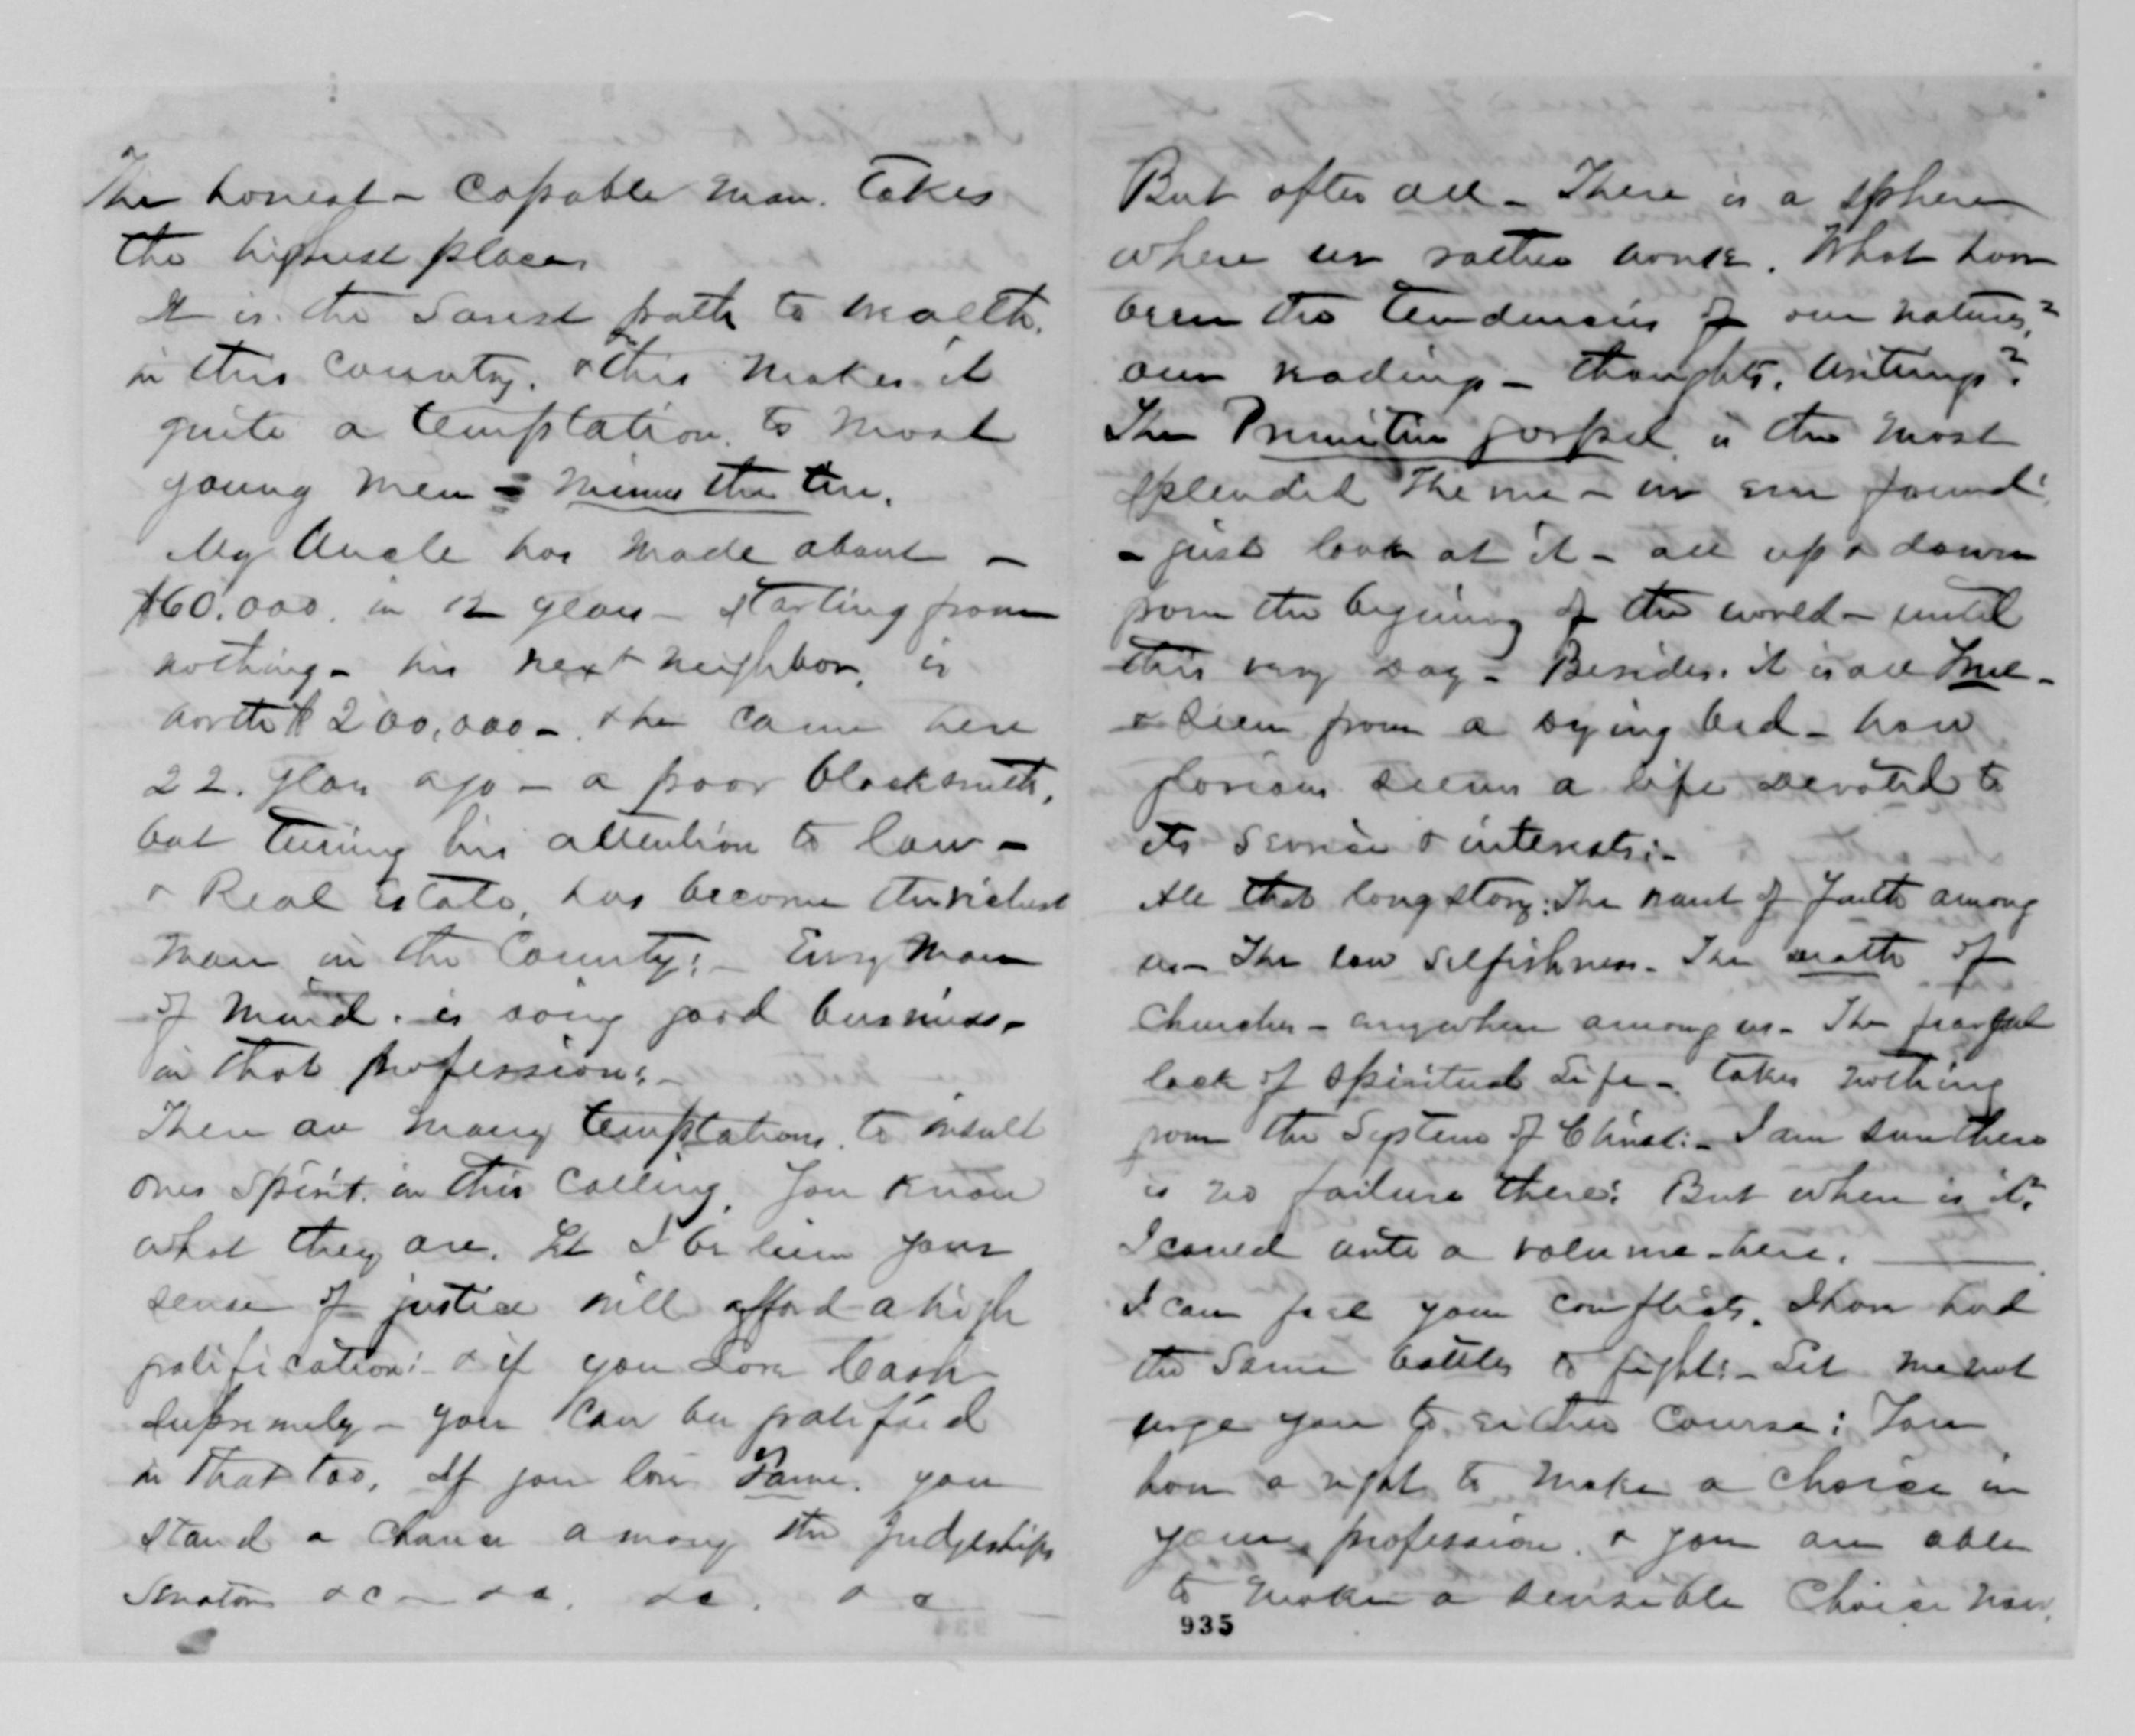 The honest - Capable man. takes
the highest places
It is the surest path to wealth.
in this country. & this makes it
quite a temptation. to most
young men - minus the ten.
My Uncle has made about -
$60.000. in 12 years - starting from
nothing - his next neighbor, is
worth $200,000 - & he came here
22. years ago - a poor blacksmith,
but turning his attention to law -
& Real Estate, has become the richest
man in the County: - Every man
of mind. is doing good business -
in that profession: -
There are many temptations. to insult
ones spirit. in this calling. You know
what they are. Yet I believe your
sense of justice will afford a high
gratification: - & if you love Cash
supremely - you can be gratified
in that too. If you love Fame. you
stand a chance among the Judgeships
Senators &c - &c. &c. &c
But after all - There is a sphere
where we rather work. What have
been the tendencies of our natures,?
our readings - thoughts. Writings?
The Primitive gospel is the most
splendid Theme - we ever found:
- just look at it - all up & down
from the begining of the world - until
this very day - Besides. it is all true -
& seen from a dying bed - how
glorious seems a life devoted to
its service & interests: -
All that long story: The want of faith among
us - The low selfishness - The death of
Churches - anywhere among us - The fearful
lack of spiritual Life - takes nothing
from the System of Christ: - I am sure there
is no failure there: But where is it?
I could write a volume - here.
I can feel your conflicts. I have had
the same battles to fight: - Let me not
urge you to either course: You
have a right to make a choice in
your profession. & you are able
to make a sensible Choice now.
935